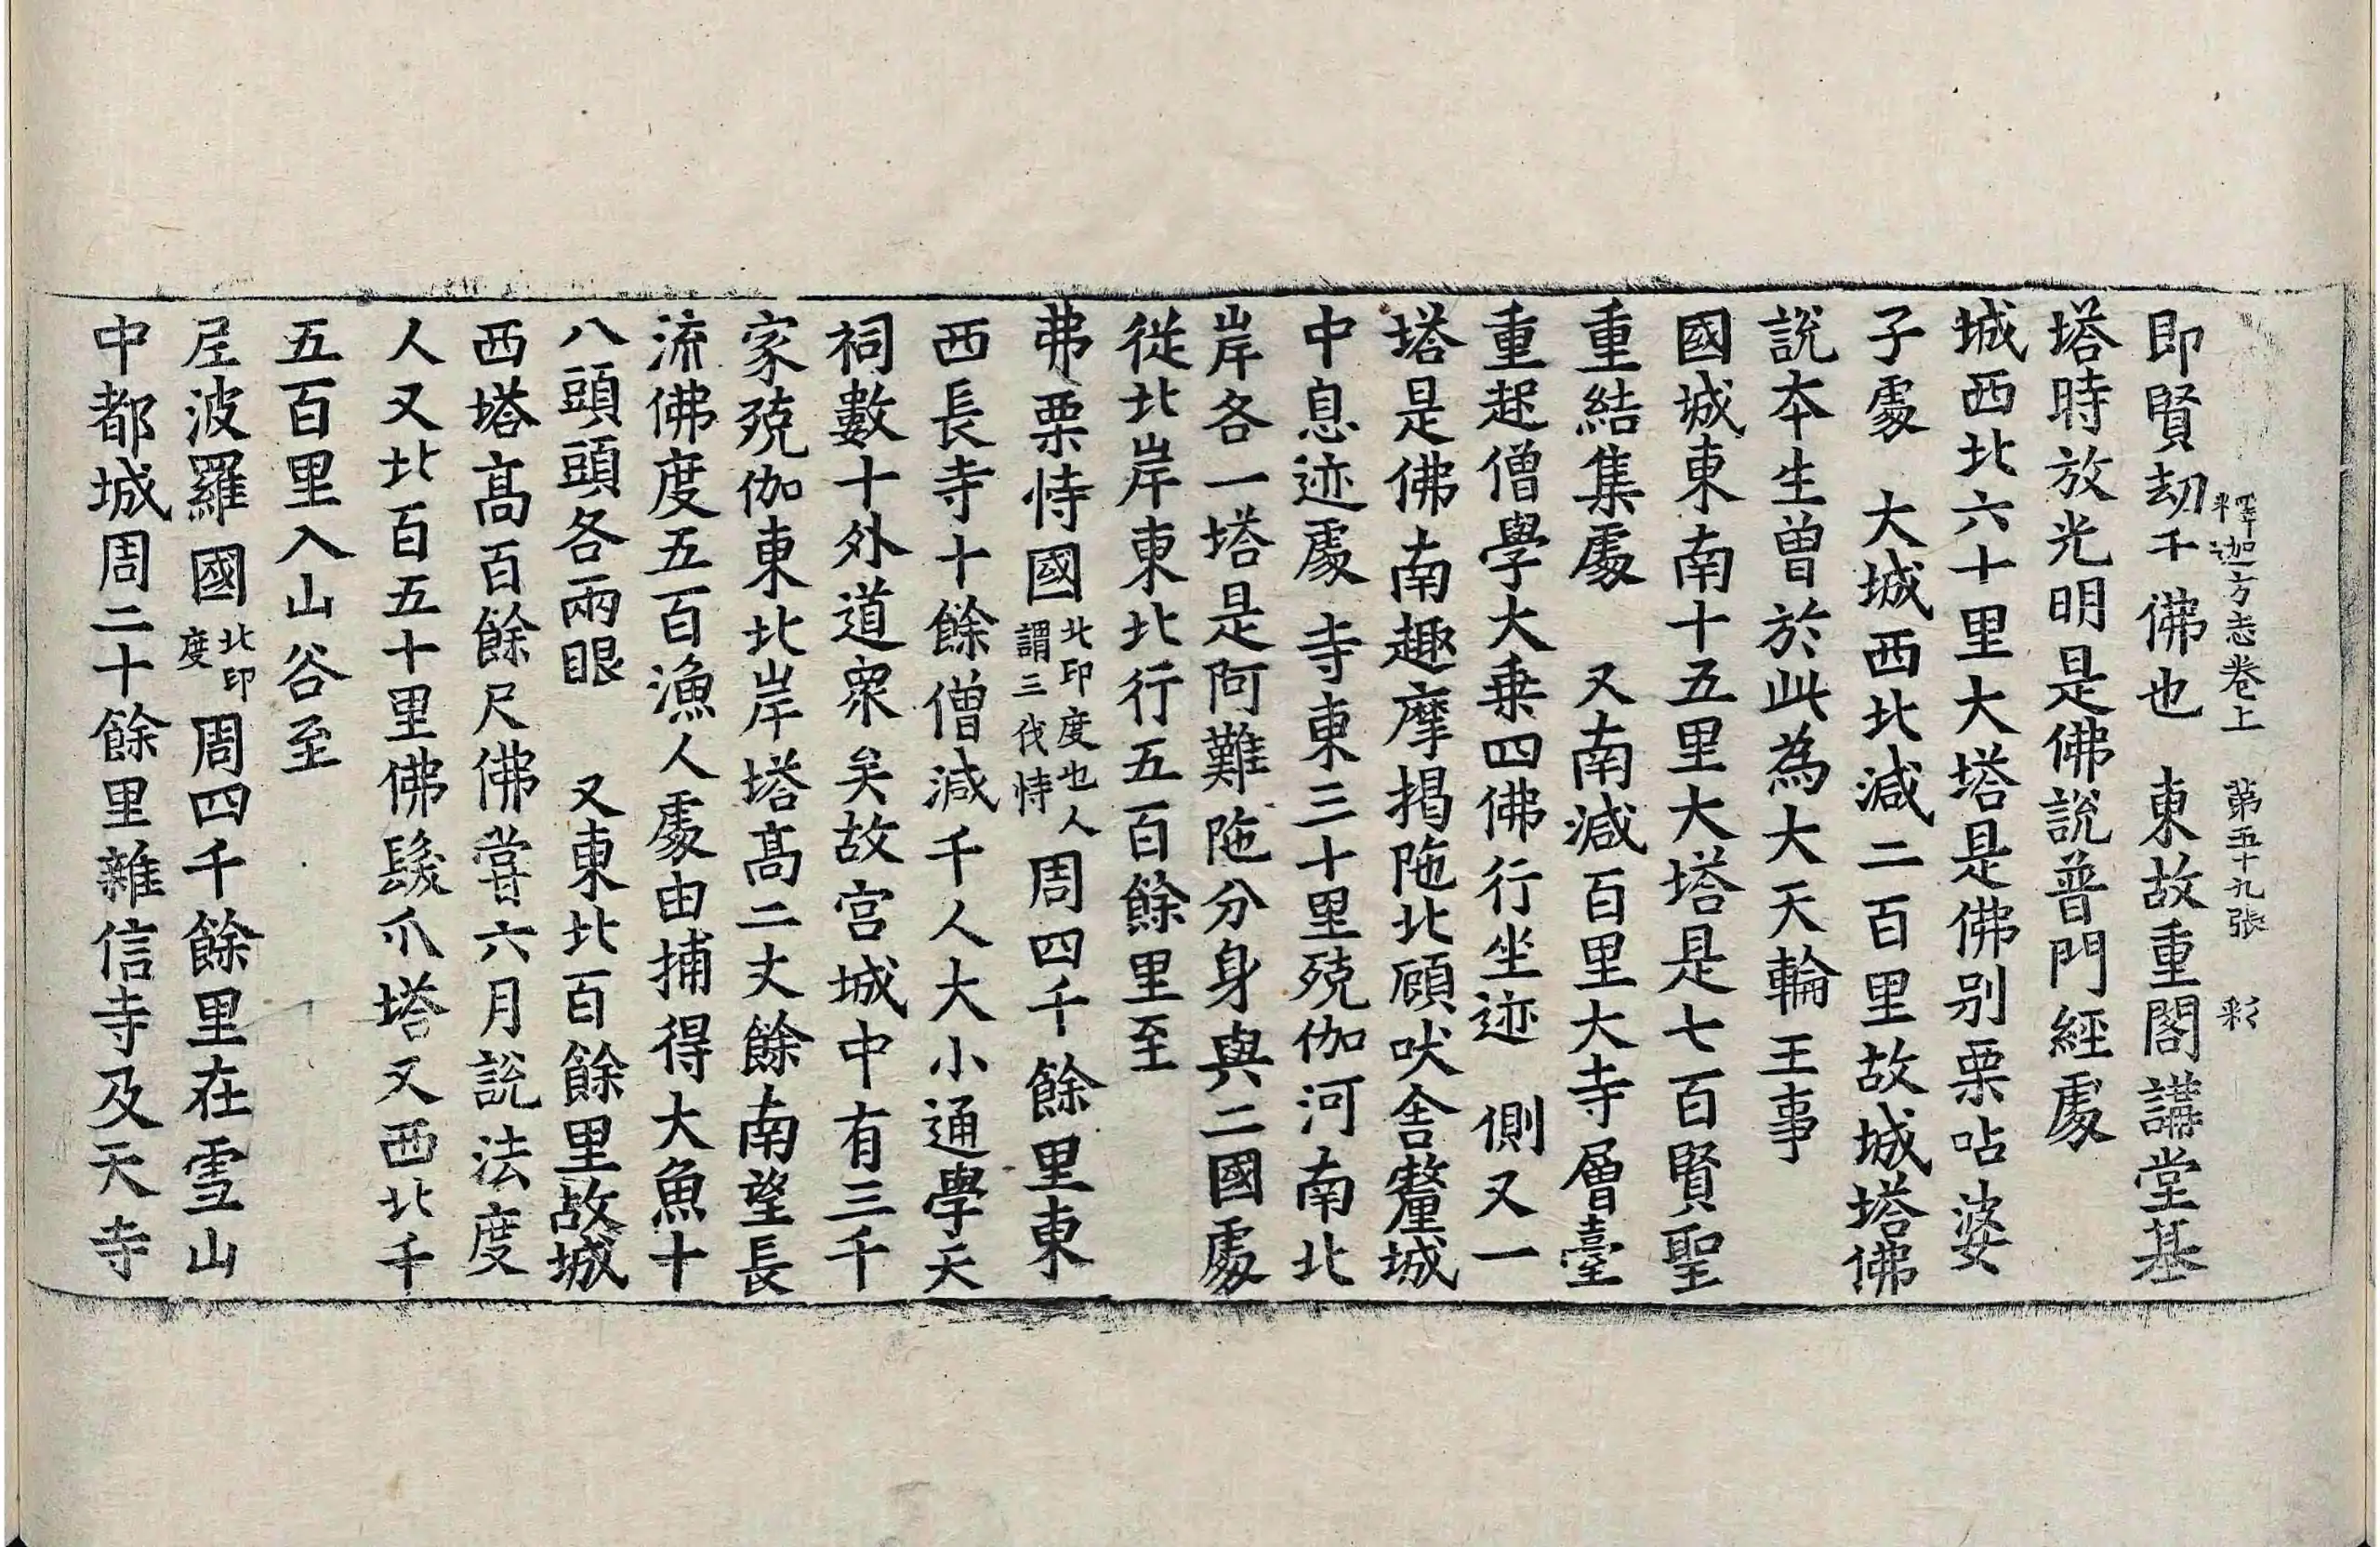 釋迦方志卷上　第五十九張　彩
即賢劫千佛也　東故重閣講堂基
塔時放光明是佛說普門經處
城西北六十里大塔是佛别栗呫婆
子處　大城西北減二百里故城塔佛
說本生曾於此為大天輪王事
國城東南十五里大塔是七百賢聖
重結集處　又南減百里大寺層臺
重起僧學大乗四佛行坐迹　側又一
塔是佛南趣摩揭陁北顧吠舍釐城
中息迹處　寺東三十里殑伽河南北
岸各一塔是阿難陁分身與二國處
從北岸東北行五百餘里至
弗栗恃國北印度也人謂三伐恃周四千餘里東
西長寺十餘僧減千人大小通學天
祠數十外道衆矣故宫城中有三千
家殑伽東北岸塔髙二丈餘南望長
流佛度五百漁人處由捕得大魚十
八頭頭各兩眼　又東北百餘里故城
西塔髙百餘尺佛嘗六月說法度
人又北百五十里佛髮爪塔又西北千
五百里入山谷至
尼波羅國北印度周四千餘里在雪山
中都城周二十餘里雜信寺及天寺